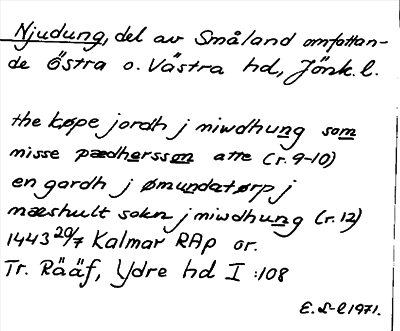 Njudung, del av Småland omfattan-
de Östra o. Västra hd, Jönk. l.
the køpe jordh j niwdhung som
misse pædhersson atte (r. 9-10)
en gardh j ømundatørp j
næshult sokn j niwdhung (r. 12)
1443 20/7 Kalmar RAp or.
Tr. Rääf, Ydre hd I :108
E. S-l 1971.